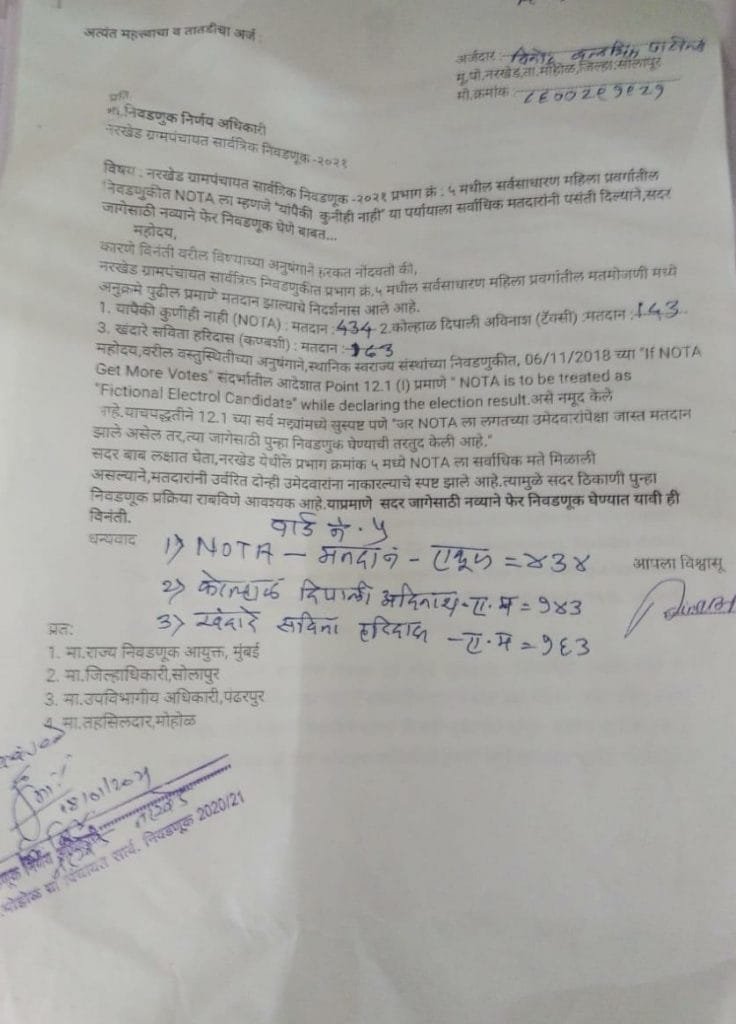 अत्यंत महत्त्वाचा व तातडीचा अर्ज :
अर्जदार :
मू.पो.नरखेड,ता.मोहोळ,जिल्हा.सोलापूर
मो.क्रमांक :
प्रति,
मा.निवडणुक निर्णय अधिकारी
नरखेड ग्रामपंचायत सार्वत्रिक निवडणूक -२०२१
विषय : नरखेड ग्रामपंचायत सार्वत्रिक निवडणूक -२०२१ प्रभाग क्रं : ५ मधील सर्वसाधारण महिला प्रवर्गातील
निवडणुकीत NOTA ला म्हणजे "यांपैकी कुनीही नाही" या पर्यायाला सर्वाधिक मतदारांनी पसंती दिल्याने,सदर
जागेसाठी नव्याने फेर निवडणूक घेणे बाबत...
महोदय,
कारणे विनंती वरील विषयाच्या अनुषंगाने हरकत नोंदवतो की,
नरखेड ग्रामपंचायत सार्वत्रिक निवडणुकीत प्रभाग क्रं.५ मधील सर्वसाधारण महिला प्रवर्गातील मतमोजणी मध्ये
अनुक्रमे पुढील प्रमाणे मतदान झाल्याचे निदर्शनास आले आहे.
1. यापैकी कुणीही नाही (NOTA) : मतदान : 434 2.कोल्हाळ दिपाली अविनाश (टॅक्सी) :मतदान : 143
3. खंदारे सविता हरिदास (कपबशी) : मतदान : 163
महोदय,वरील वस्तुस्थितीच्या अनुषंगाने,स्थानिक स्वराज्य संस्थांच्या निवडणुकीत, 06/11/2018 च्या "If NOTA
Get More Votes" संदर्भातील आदेशात Point 12.1 (I) प्रमाणे " NOTA is to be treated as
"Fictional Electrol Candidate" while declaring the election result.असे नमूद केले
आहे.याचपद्धतीने 12.1 च्या सर्व मद्द्यांमध्ये सुस्पष्ट पणे "जर NOTA ला लगतच्या उमेदवारांपेक्षा जास्त मतदान
झाले असेल तर,त्या जागेसाठी पुन्हा निवडणुक घेण्याची तरतुद केली आहे."
सदर बाब लक्षात घेता,नरखेड येथील प्रभाग क्रमांक ५ मध्ये NOTA ला सर्वाधिक मते मिळाली
असल्याने,मतदारांनी उर्वरित दोन्ही उमेदवारांना नाकारल्याचे स्पष्ट झाले आहे.त्यामुळे सदर ठिकाणी पुन्हा
निवडणूक प्रक्रिया राबविणे आवश्यक आहे.याप्रमाणे सदर जागेसाठी नव्याने फेर निवडणूक घेण्यात यावी ही
विनंती.
वार्ड नं. ५
धन्यवाद
1) NOTA – मतदान - एकूण = ४३४
आपला विश्वासू
2) कोल्हाळ दिपाली अविनाश - ए.म = १४३
3) खंदारे सविता हरिदास - ए.म = १६३
प्रत:
1. मा.राज्य निवडणूक आयुक्त, मुंबई
2. मा.जिल्हाधिकारी,सोलापूर
3. मा.उपविभागीय अधिकारी,पंढरपुर
4. मा.तहसिलदार,मोहोळ
18/01/2021
निर्णय
मोहोळ ग्रा पंचायत सार्व. निवडणूक 2020/21